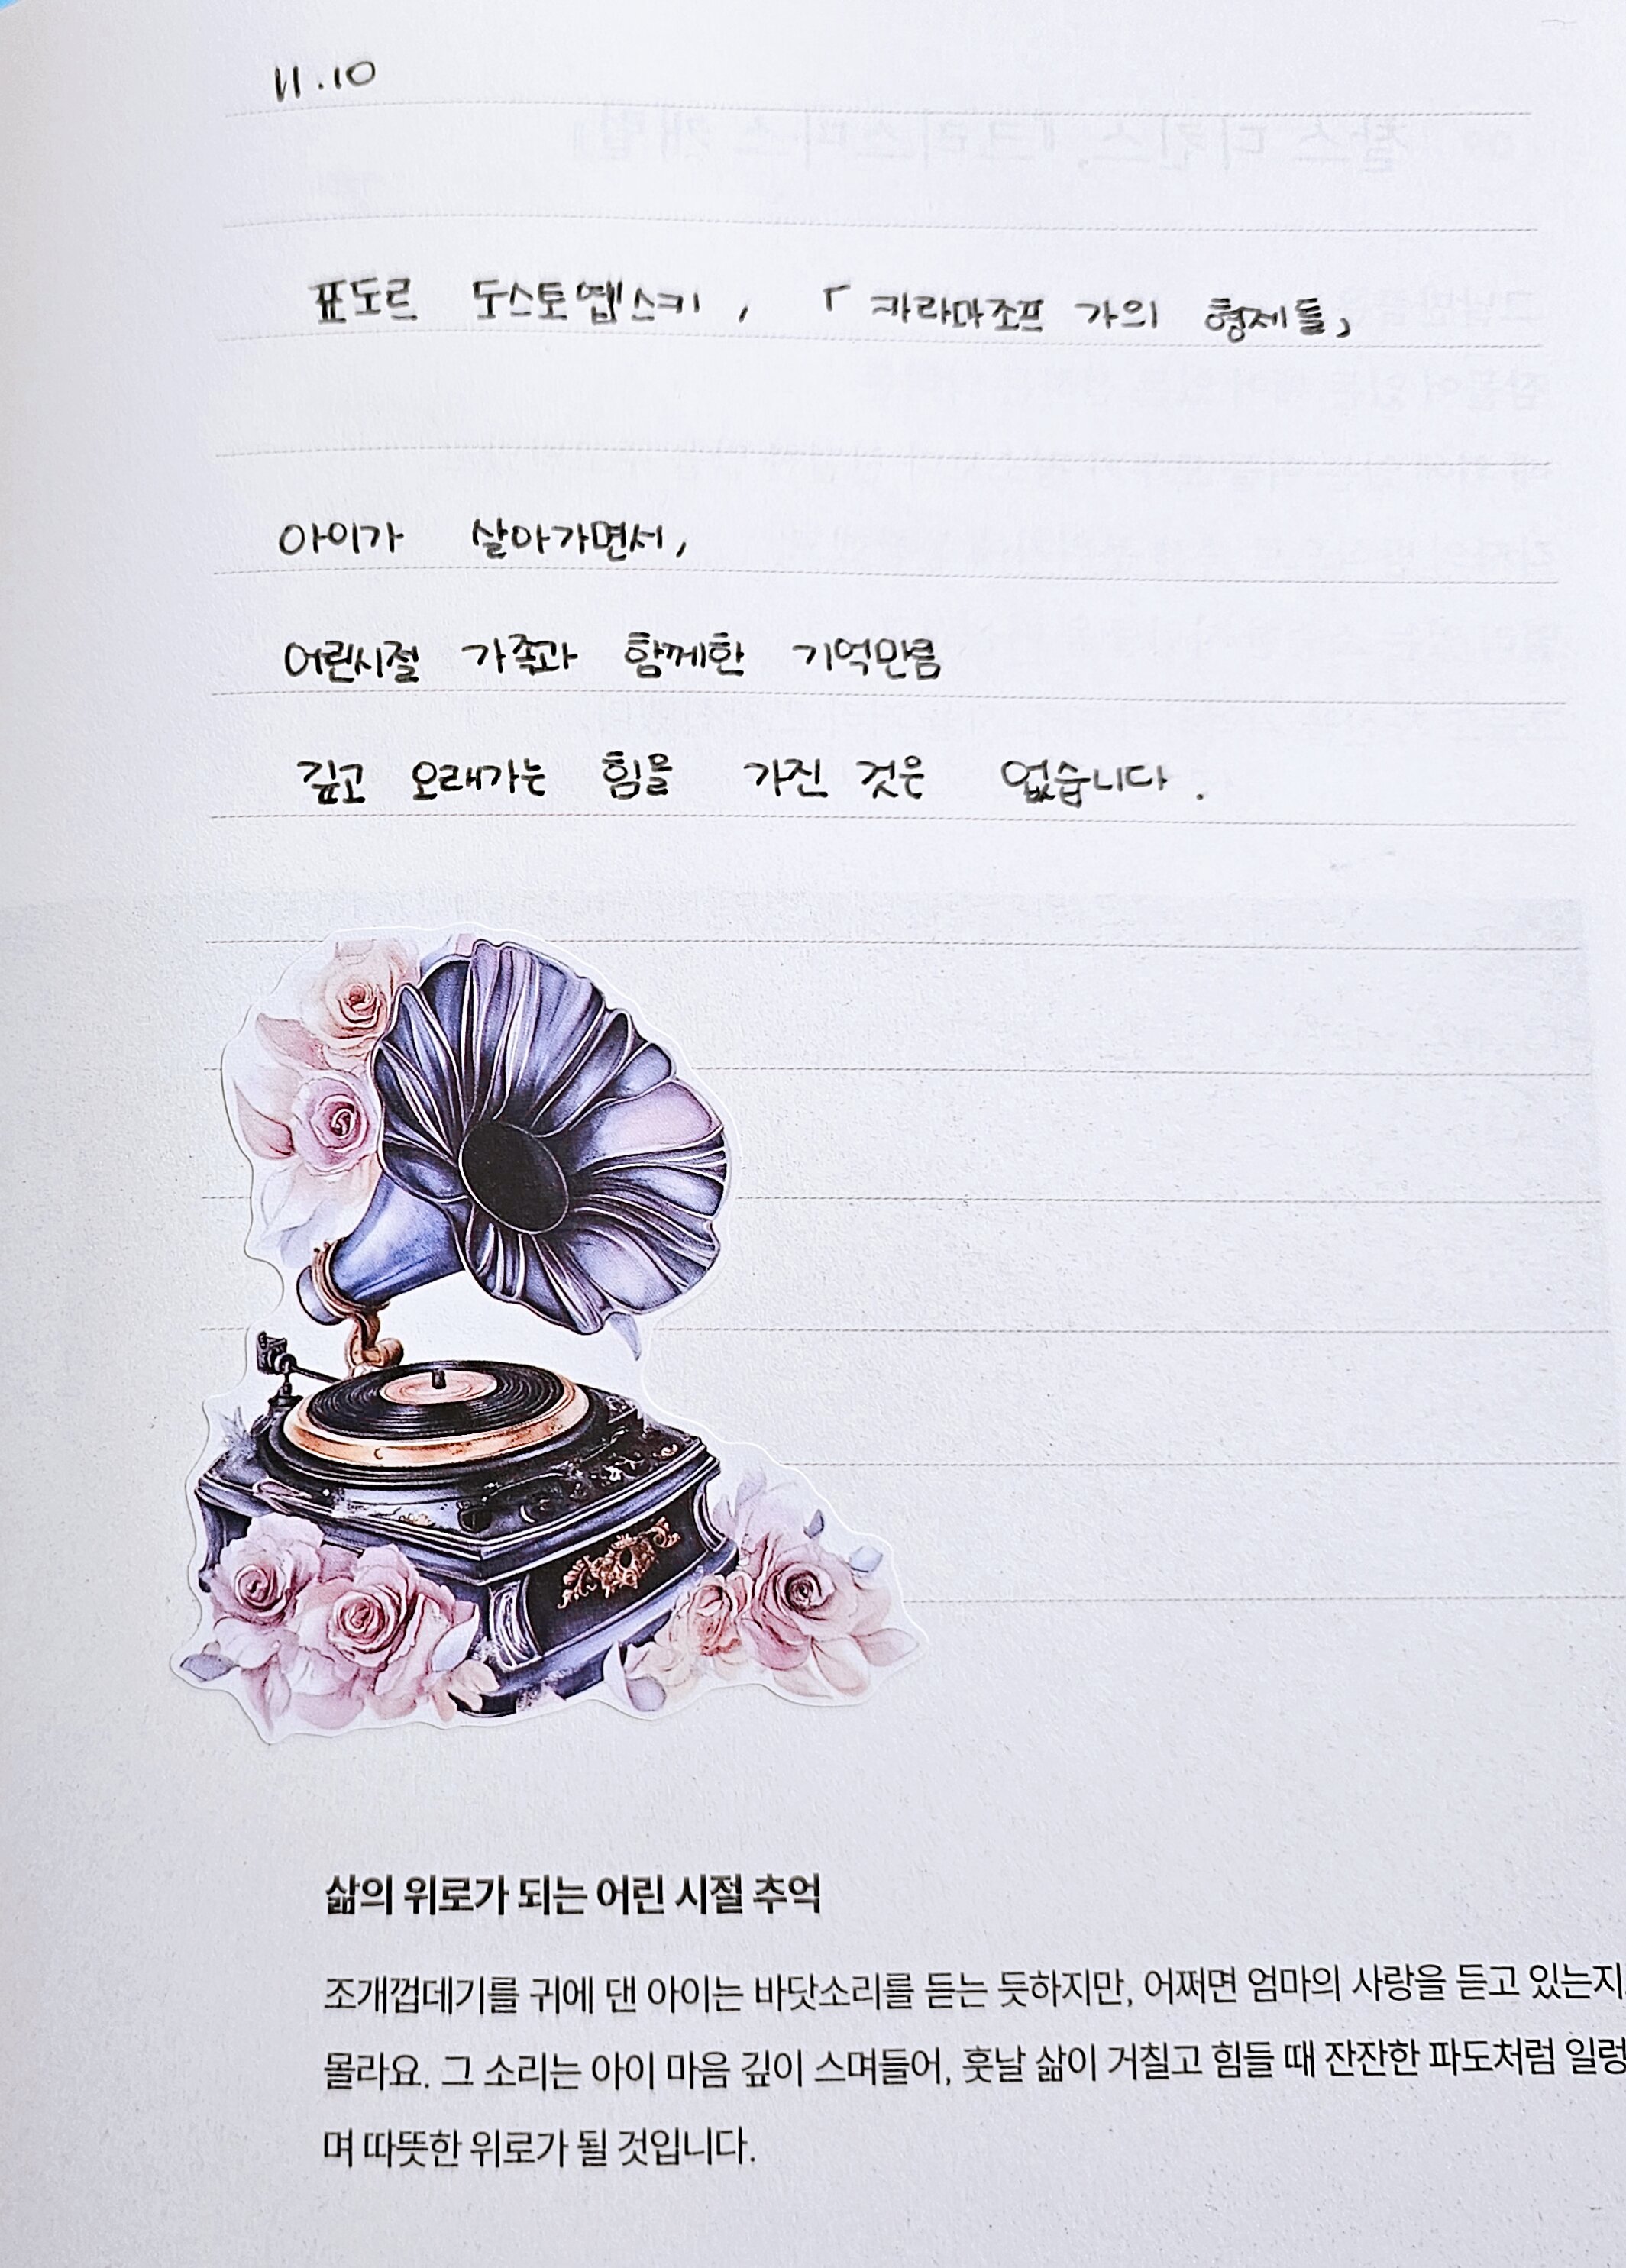 11.10
표도르 도스토옙스키, 「카라마조프 가의 형제들」
아이가 살아가면서,
어린시절 가족과 함께한 기억만큼
깊고 오래가는 힘을 가진 것은 없습니다.
삶의 위로가 되는 어린 시절 추억
조개껍데기를 귀에 댄 아이는 바닷소리를 듣는 듯하지만, 어쩌면 엄마의 사랑을 듣고 있는지
몰라요. 그 소리는 아이 마음 깊이 스며들어, 훗날 삶이 거칠고 힘들 때 잔잔한 파도처럼 일렁
며 따뜻한 위로가 될 것입니다.